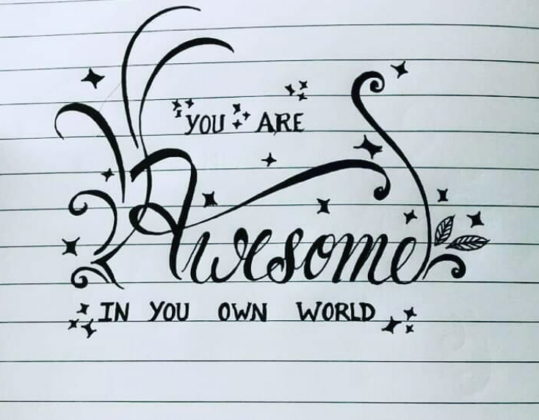 YOU ARE
Awesome
IN YOU OWN WORLD